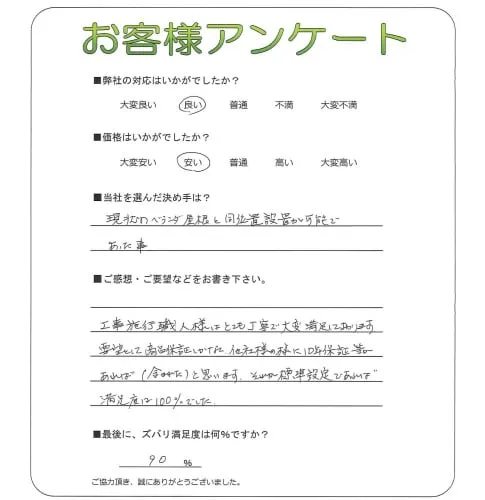 お客様アンケート
■弊社の対応はいかがでしたか？
大変良い 良い 普通 不満 大変不満
■価格はいかがでしたか？
大変安い 安い 普通 高い 大変高い
■当社を選んだ決め手は？
現状のベランダ屋根と同位置設置が可能で
あった事
■ご感想・ご要望などをお書き下さい。
工事施行職人様はとても丁寧で大変満足しております
要望として商品保証しかなく、他社様の様に10年保証等が
あれば（含めた）と思います。それが標準設定であれば
満足度は100％でした。
■最後に、ズバリ満足度は何％ですか？
90 ％
ご協力頂き、誠にありがとうございました。